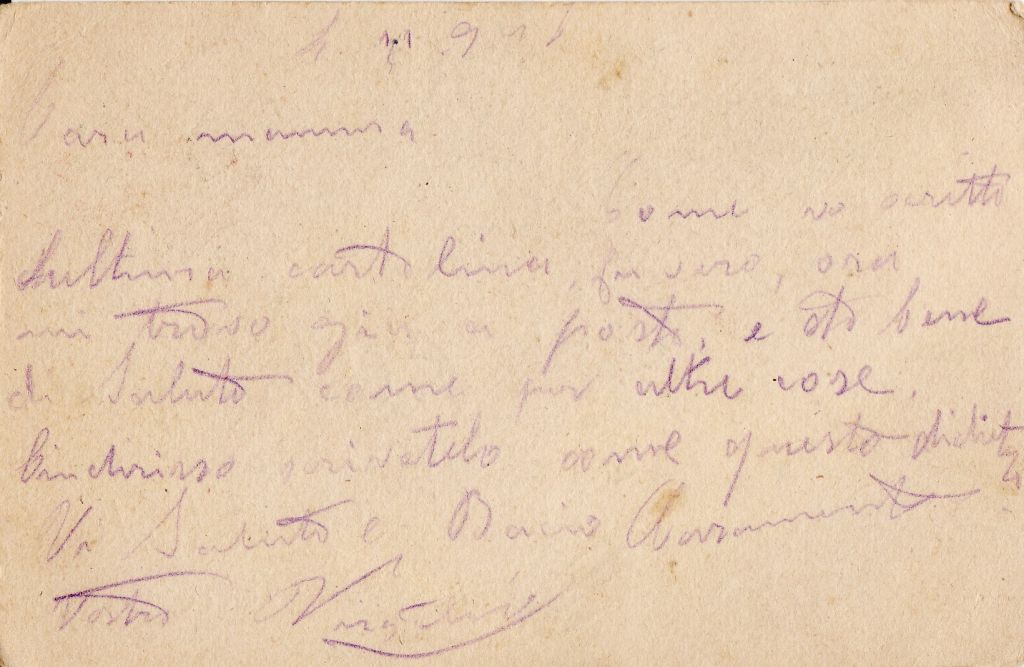 4 11 917
Cara mamma
Come vo scritto
Lultima cartolina, fu vero, ora
mi trovo gia a posto, e sto bene
di Saluto come per altre cose.
Lindirisso scrivetelo come questo didietro
Vi Saluto e Bacio Caramente
Vostro Virgilio